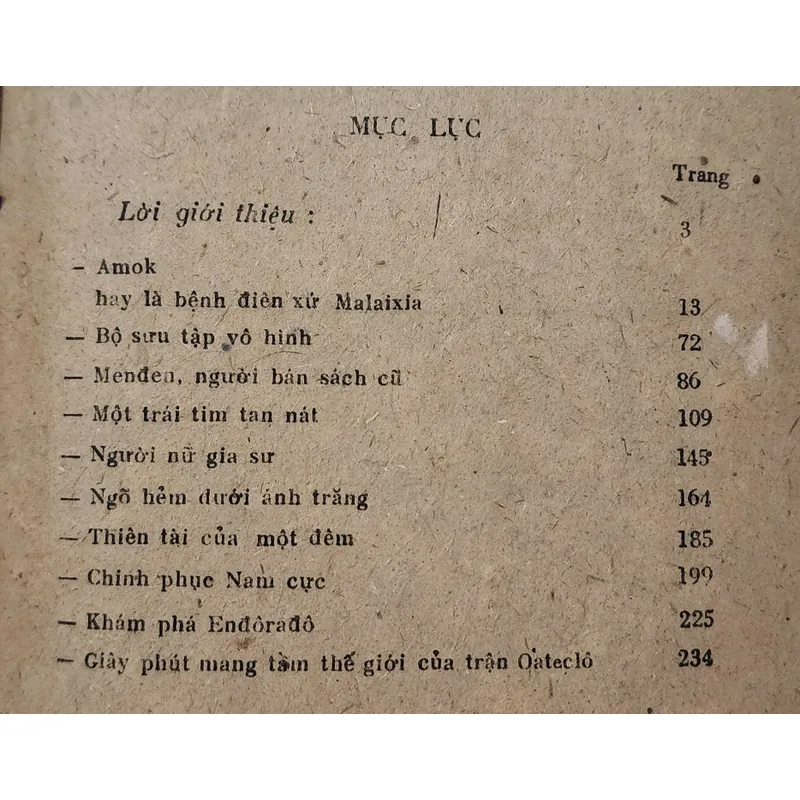 MỤC LỤC
Trang
Lời giới thiệu : 3
- Amok
hay là bệnh điên xứ Malaixia 13
- Bộ sưu tập vô hình 72
- Menđen, người bán sách cũ 86
- Một trái tim tan nát 109
- Người nữ gia sư 145
- Ngõ hẻm dưới ánh trăng 164
- Thiên tài của một đêm 185
- Chinh phục Nam cực 199
- Khám phá Enđôrađô 225
- Giây phút mang tầm thế giới của trận Oateclô 234